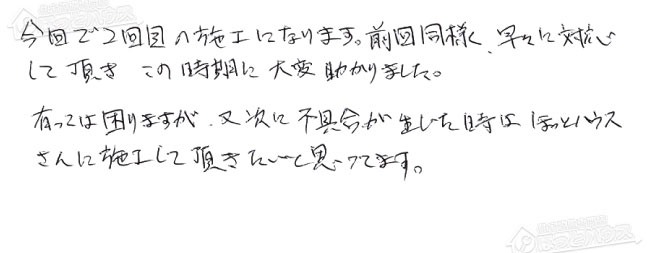 今回で2回目の施工になります。前回同様、早々に対応
して頂き この時期に大変助かりました。
有っては困りますが、又次に不具合が生じた時は ほっとハウス
さんに施工して頂きたいと思ってます。
ほっとハウス